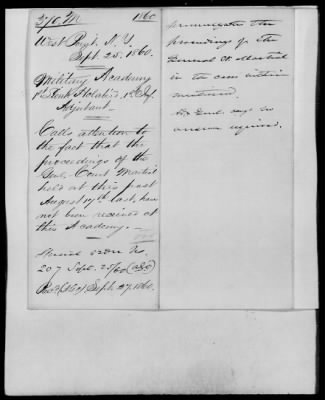 370. M 1860
West Point, N.Y.
Sept. 25. 1860.
Military Academy
1st Lieut Holabird, 1st Inf.
Adjutant.
Calls attention to
the fact that the
proceedings of the
Genl. Court Martial
held at this post
August 17th last, have
not been received at
this Academy.
207 Sept. 25/60
Sept. 27. 1860.
promulgate the
proceedings of the
General Ct Martial
in the case within
mentioned.
answer required.